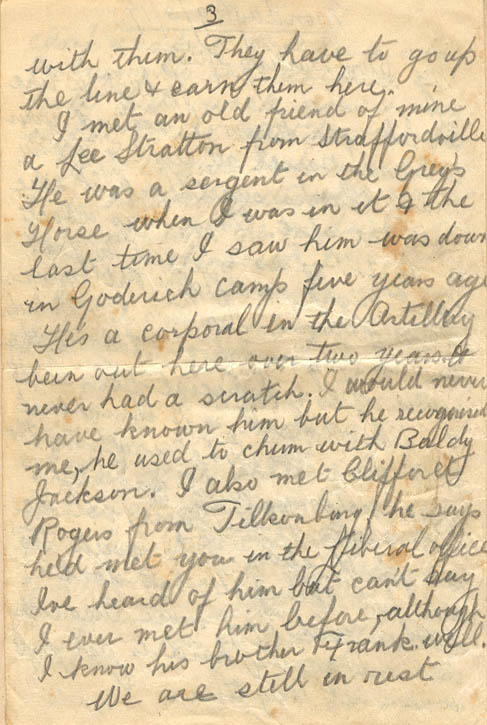 3
with them. They have to go up
the line & earn them here.
I met an old friend of mine
a Lee Stratton from Straffordville
He was a sergent in the Grey's
Horse when I was in it & the
last time I saw him was down
in Goderich camp five years ago
He's a corporal in the Artillery
been out here over two years &
never had a scratch. I would never
have known him but he recognised
me, he used to chum with Baldy
Jackson. I also met Clifford
Rogers from Tillsonburg he says
he'd met you in the liberal office
I've heard of him but can't say
I ever met him before, although
I know his brother Frank well.
We are still in rest